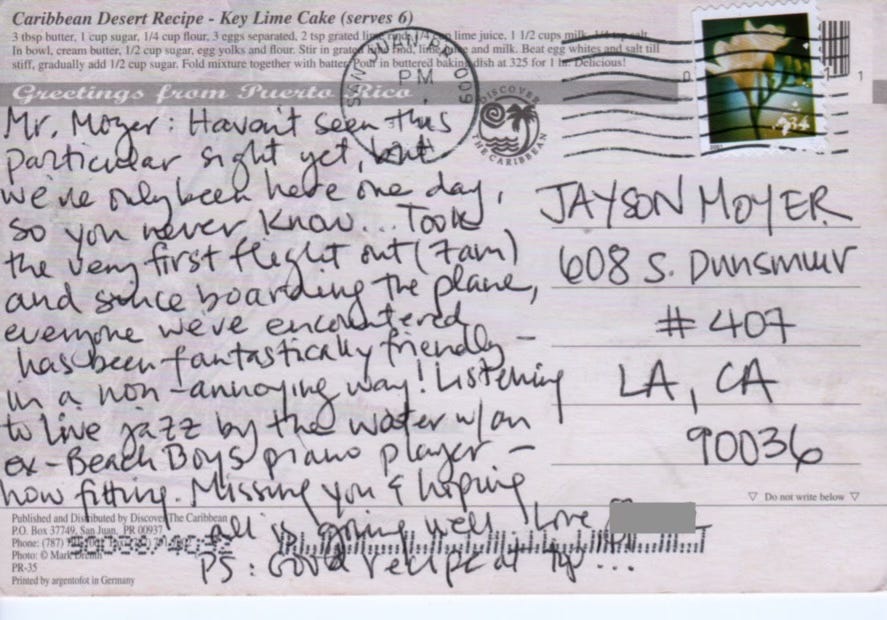 Caribbean Desert Recipe - Key Lime Cake (serves 6)
3 tbsp butter, 1 cup sugar, 1/4 cup flour, 3 eggs separated, 2 tsp grated lime rind, 1/4 cup lime juice, 1 1/2 cups milk, 1/4 tsp salt.
In bowl, cream butter, 1/2 cup sugar, egg yolks and flour. Stir in grated lime rind, lime juice and milk. Beat egg whites and salt till
stiff, gradually add 1/2 cup sugar. Fold mixture together with batter. Pour in buttered baking dish at 325 for 1 hr. Delicious!
Greetings from Puerto Rico
SAN JUAN PR 009
PM
DISCOVER
THE CARIBBEAN
34
2001
0 1 1
Mr. Moyer: Haven't seen this
particular sight yet, but
we've only been here one day,
so you never know... Took
the very first flight out (7am)
and since boarding the plane,
everyone we've encountered
has been fantastically friendly -
in a non-annoying way! Listening
to live jazz by the water w/ an
ex-Beach Boys piano player -
how fitting. Missing you & hoping
all is going well. Love
PS: Good recipe at top...
JAYSON MOYER
608 S. Dunsmuir
# 407
LA, CA
90036
▽ Do not write below ▽
Published and Distributed by Discover The Caribbean
P.O. Box 37749, San Juan, PR 00937
Phone: (787)
Photo: © Mark
PR-35
Printed by argentofot in Germany